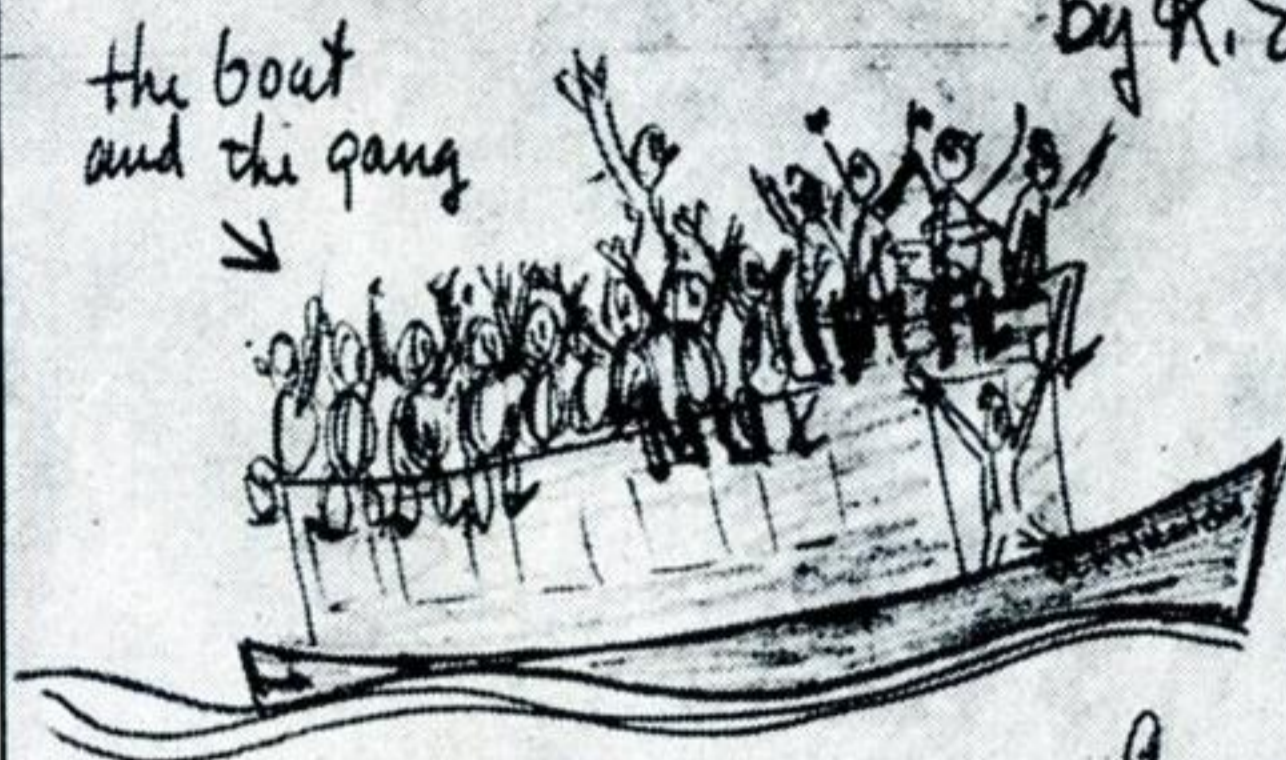 the boat
and the gang
by R.